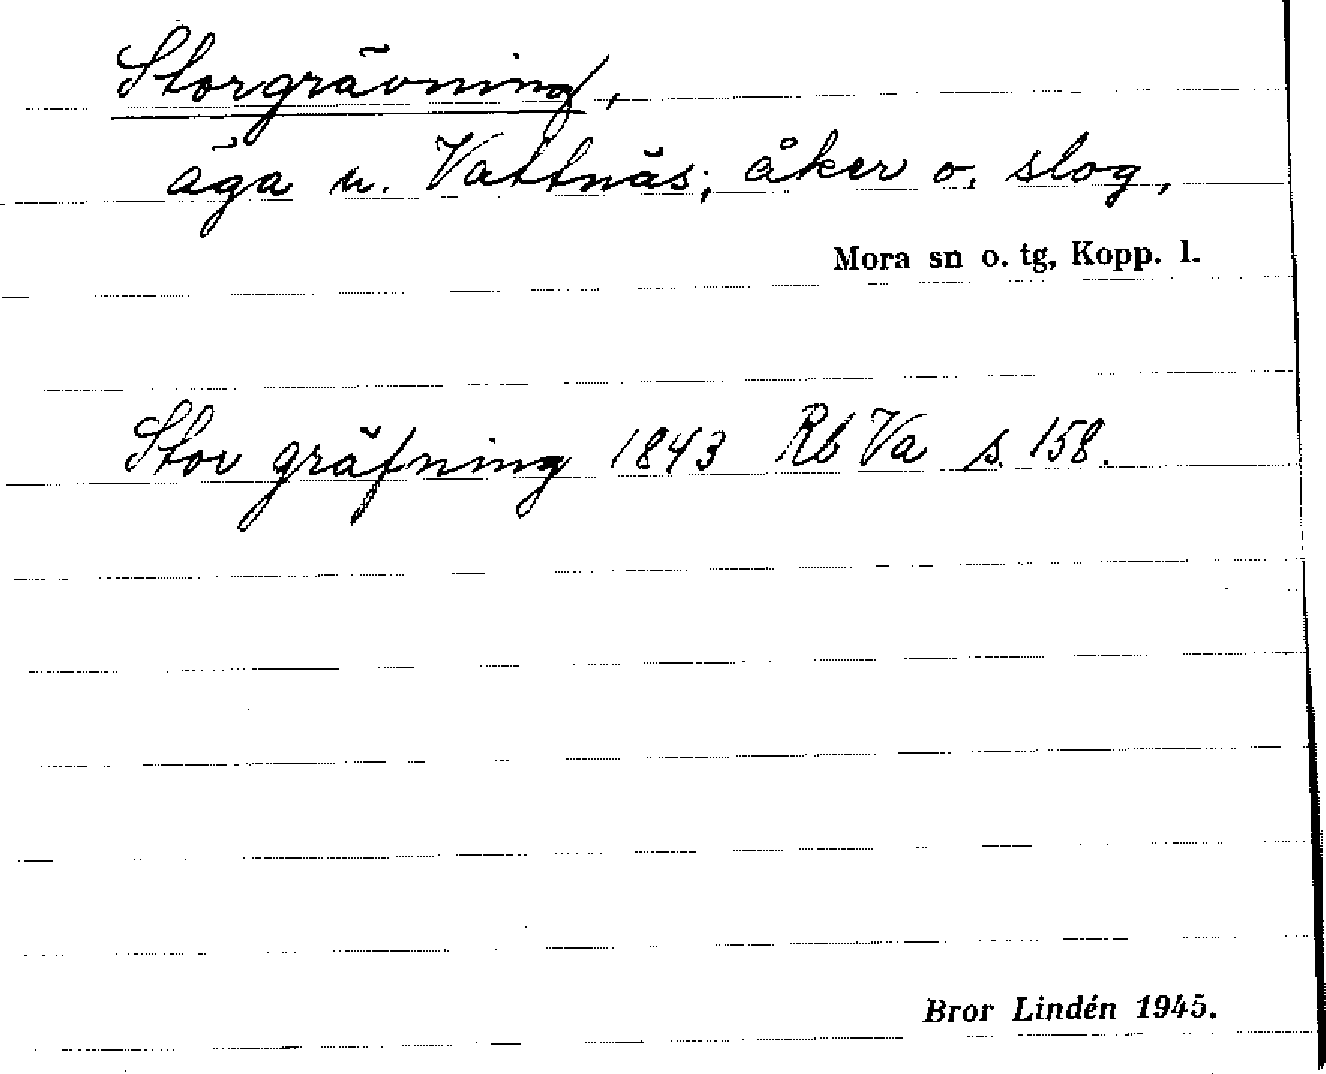 Storgrävning,
äga u. Vattnäs; åker o. slog,
Mora sn o. tg, Kopp. l.
Stor gräfning 1843 Rb Va s. 158.
Bror Lindén 1945.